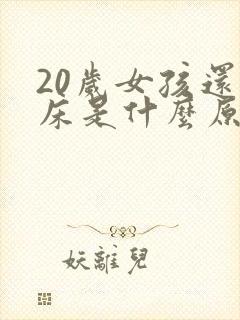 20歲女孩還
床是什麼原
妖離兒